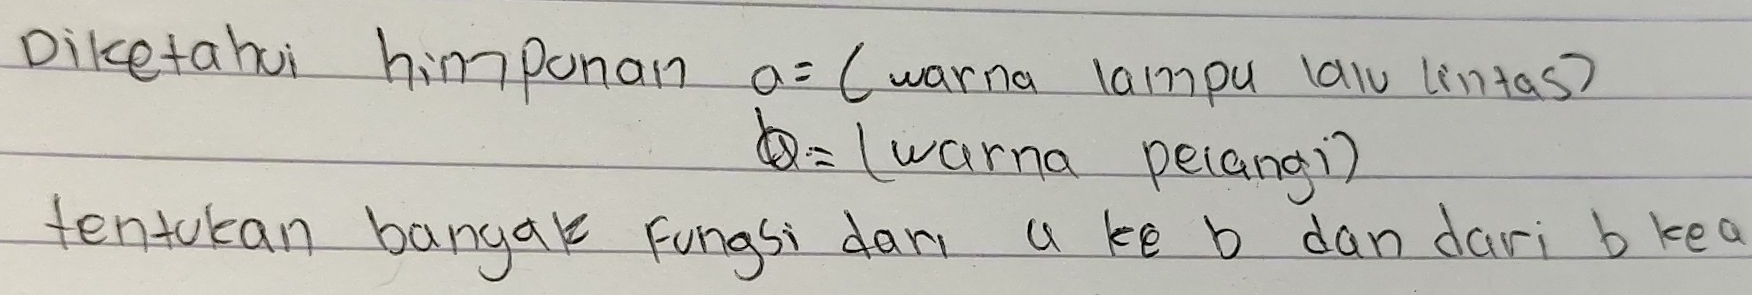 Diketahui himpunan a = (warna lampu lalu lintas)
b = (warna pelangi)
tentukan banyak fungsi dari a ke b dan dari b ke a